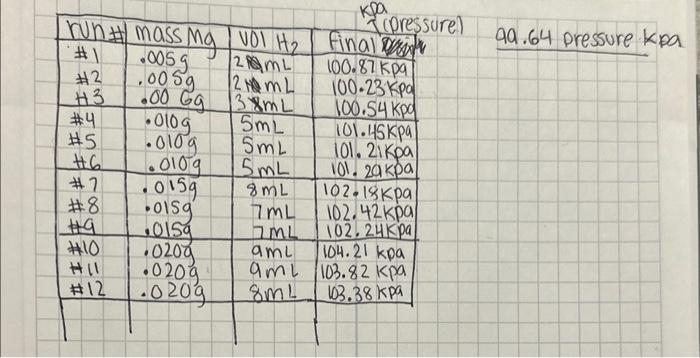 kpa
(pressure)
run# mass Mg vol H₂ final
99.64 pressure kpa
#1 .005g 2 mL 100.87 kpa
#2 .005g 2 mL 100.23 kpa
#3 .006g 3 mL 100.54 kpa
#4 .010g 5mL 101.45 kpa
#5 .010g 5mL 101.21 kpa
#6 .010g 5mL 101.29 kpa
#7 .015g 8mL 102.18 kpa
#8 .015g 7mL 102.42 kpa
#9 .015g 7mL 102.24 kpa
#10 .020g 9mL 104.21 kpa
#11 .020g 9mL 103.82 kpa
#12 .020g 8mL 103.38 kpa